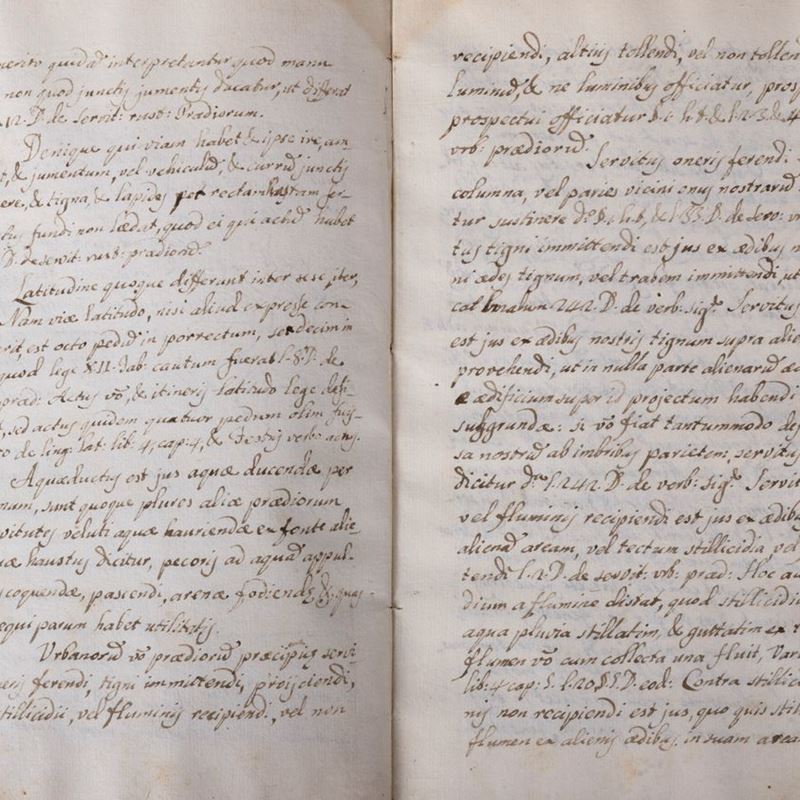 merito quidā interpretantur quod manu
non quod junctis jumentis ducatur, ut differat
12. D. de servit: rust: Prædiorum.
Denique qui viam habet & ipse ire, am-
& jumentum, vel vehiculū, & currū junctis
ere, & tigna, & lapides per rectam hastam fer-
fundi non lædat, quod ei qui actū habet
D. de servit: rust: prædiorū.
Latitudine quoque differunt inter sese iter,
Nam viæ latitudo, nisi aliud expresse con-
erit, est octo pedū in porrectum, sexdecim in
quod lege XII. Tab: cautum fuerat l. 8. D. de
præd: Actus vō, & itineris latitudo lege defi-
sed actus quidem quatuor pedum olim fuis-
de ling: lat: lib: 4, cap: 4, & Festus verbo actus.
Aquæductus est jus aquæ ducendæ per
num, sunt quoque plures aliæ prædiorum
vitutes veluti aquæ hauriendæ ex fonte alie-
haustus dicitur, pecoris ad aquā appul-
coquendæ, pascendi, arenæ fodiendæ, &
equi parum habet utilitatis.
Urbanorū vō prædiorū præcipuæ servi-
oneris ferendi, tigni immittendi, proijciendi,
stillicidii, vel fluminis recipiendi, vel non
recipiendi, altius tollendi, vel non tollen
luminū, & ne luminibus officiatur, pros
prospectui officiatur §. 1. h. t. & l. 2. 3. & 4
urb: prædiorū.
Servitus oneris ferendi
columna, vel paries vicini onus nostrarū
tur sustinere d. §. 1. h. t. & l. 33. D. de serv: ur
tus tigni immittendi est jus ex ædibus
ni ædes tignum, vel trabem immittendi, ut
cat 242. D. de verb: sig. Servitus
est jus ex ædibus nostris tignum supra alie
provehendi, ut in nulla parte alienarū æd
ædificium super id projectum habendi
suggrundæ: si vō fiat tantummodo de
sa nostrū ab imbribus parietem, servitus
dicitur d. l. 242. D. de verb: sig. Servit
vel fluminis recipiendi est jus ex ædibus
alienā aream, vel tectum stillicidia, vel
tendi l. 2. D. de servit: urb: præd: Hoc au
dium a flumine distat, quod stillicidiu
aqua pluvia stillatim, & guttatim ex
flumen vō cum collecta una fluit, Var
lib: 4 cap: 5. l. 20. §. 5. D. eod: Contra stillic
nis non recipiendi est jus, quo quis stil
flumen ex alienis ædibus, in suam area